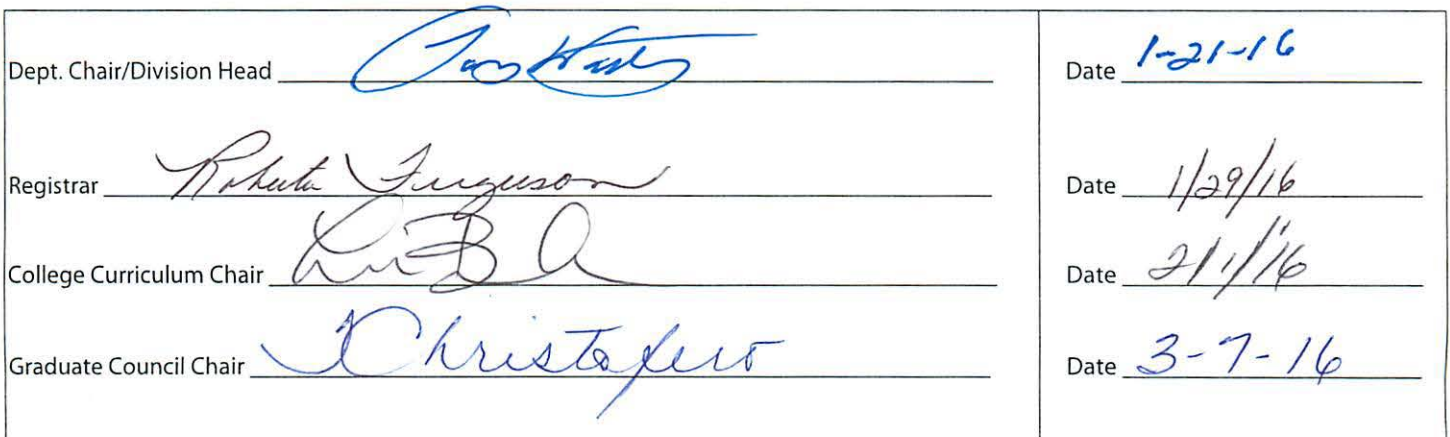 Dept. Chair/Division Head Date 1-21-16
Registrar Roberta Ferguson Date 1/29/16
College Curriculum Chair Date 2/1/16
Graduate Council Chair Date 3-7-16